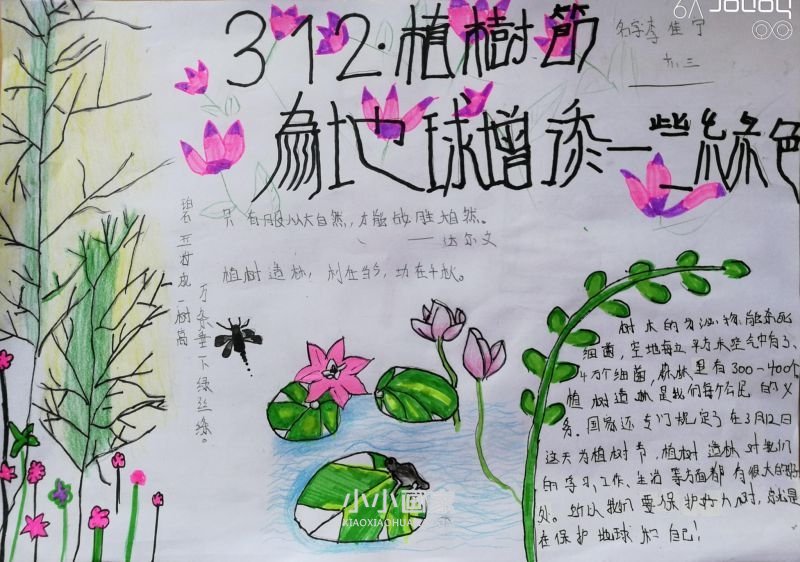 312·植樹節
名字李佳宁
六.三
為地球增添一些綠色
只有服从大自然,才能战胜大自然。
——达尔文
植树造林,利在当今,功在千秋。
碧玉妆成一树高
万条垂下绿丝绦。
树木的分泌物能杀死
细菌,空地每立方米空气中有3、
4万个细菌,森林里有300-400个
植树造林是我们每个公民的义
务。国家还专门规定了在3月12日
这天为植树节,植树造林对我们
的学习、工作、生活等方面都有很大的好
处。所以我们要保护好小树,你就是
在保护地球和自己!
小小画家
XIAOXIAOHUAJIA